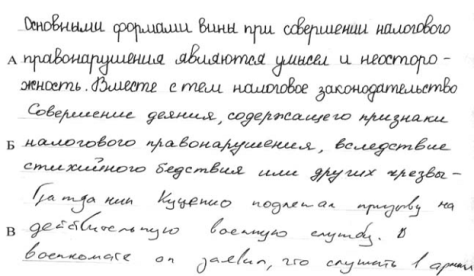 Основными формами вины при совершении налогового
А правонарушения являются умысел и неосторо-
жность. Вместе с тем налоговое законодательство
Совершение деяния, содержащего признаки
Б налогового правонарушения, вследствие
стихийного бедствия или других чрезвы-
Гражданин Куценко подлежал призыву на
В действительную военную службу. В
военкомате он заявил, что служить в армии